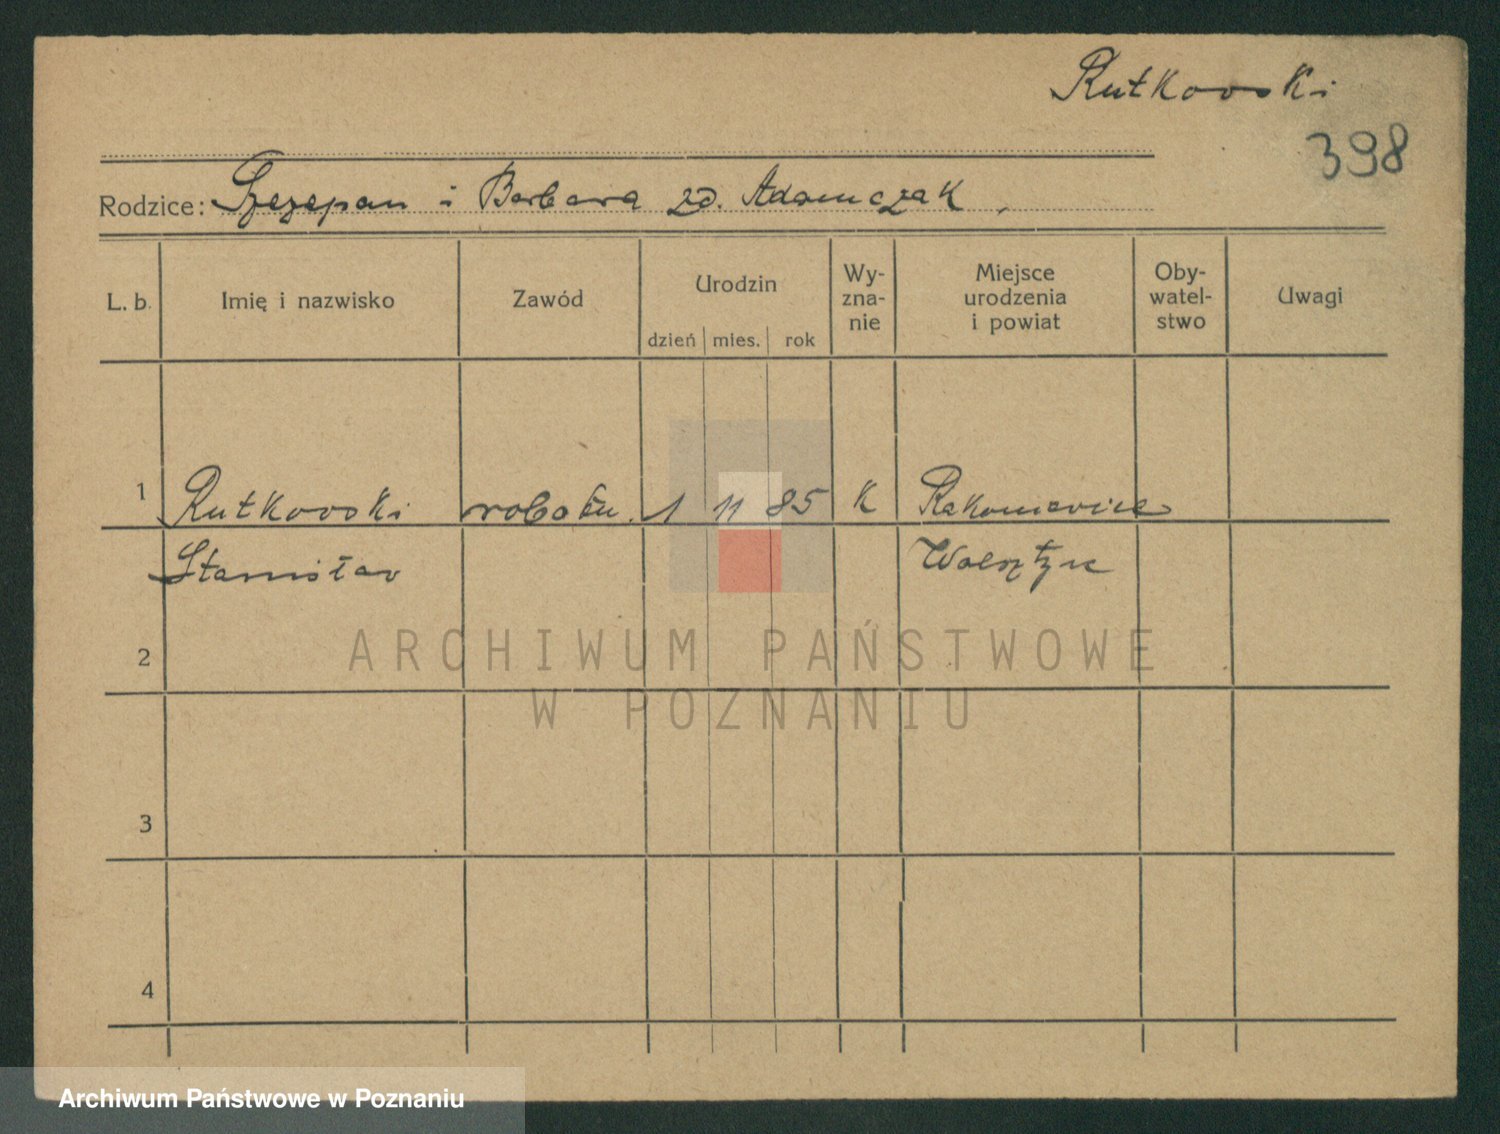 Rutkowski
398
Rodzice: Szczepan i Barbara zd. Adamczak
L. b.
Imię i nazwisko
Zawód
Urodzin
dzień mies. rok
Wy-
zna-
nie
Miejsce
urodzenia
i powiat
Oby-
watel-
stwo
Uwagi
1 Rutkowski robotn. 1 11 85 K Rakoniewice
Stanisław Wolsztyn
2
3
4
ARCHIWUM PAŃSTWOWE
W POZNANIU
Archiwum Państwowe w Poznaniu